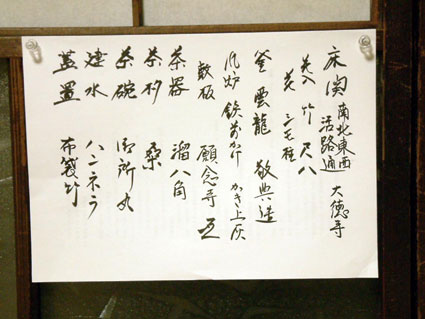 床 関 南北東西活路通 大徳寺
花入 竹 尺八
花 三種
釜 雲龍 敬典造
風炉 鉄前かけ かき上灰
敷板 願念寺瓦
茶器 溜八角
茶杓 桑
茶碗 御所丸
建水 ハンネラ
蓋置 布袋竹